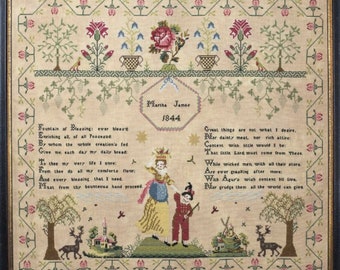 Martha James
1844
Fountain of Blessing: ever blessed
Enriching all, of all Possessed
By whom the whole creation's fed
Give me each day my daily bread
To thee my very life I owe:
From thee do all my comforts flow;
And every blessing that I need
Must from thy bounteous hand proceed
Great things are not what I desire,
Nor dainty meat, nor rich attire:
Content with little would I be:
That little Lord must come from Thee.
While wicked men with all their store
Are ever grasping after more:
With Agur's wish content he live,
Nor grudge them all the world can give